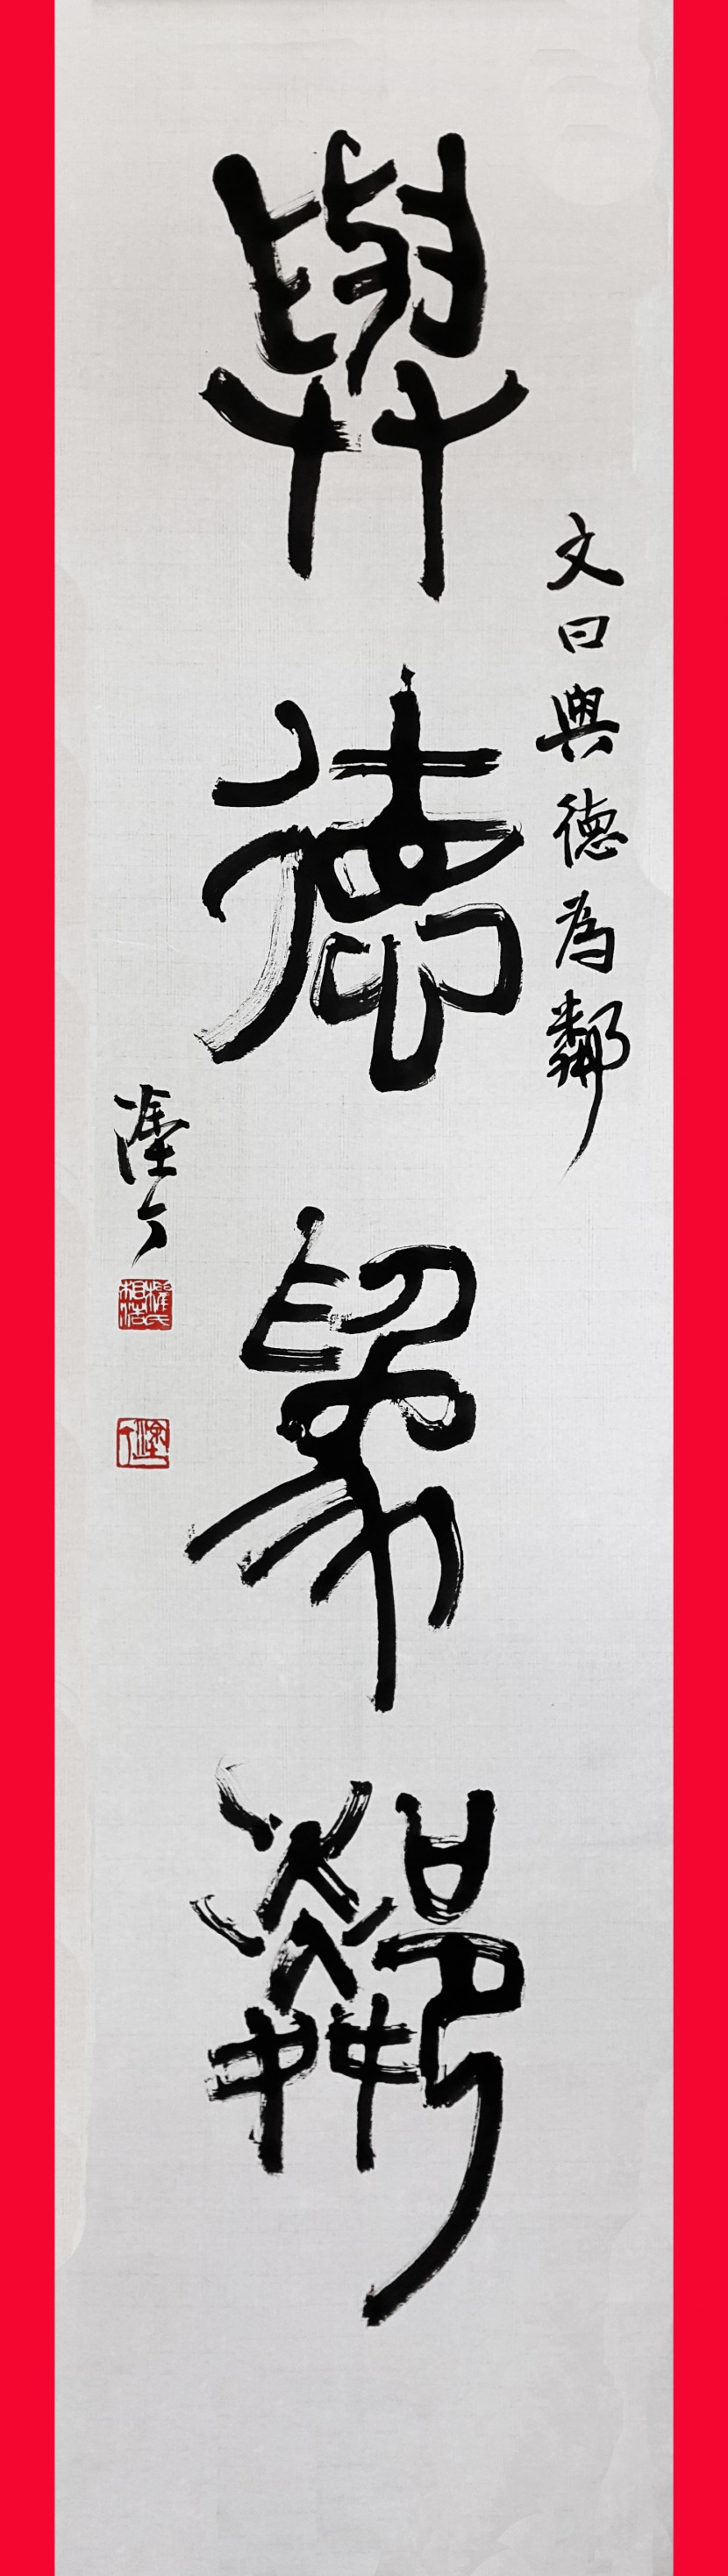 與德為鄰
文曰與德為鄰